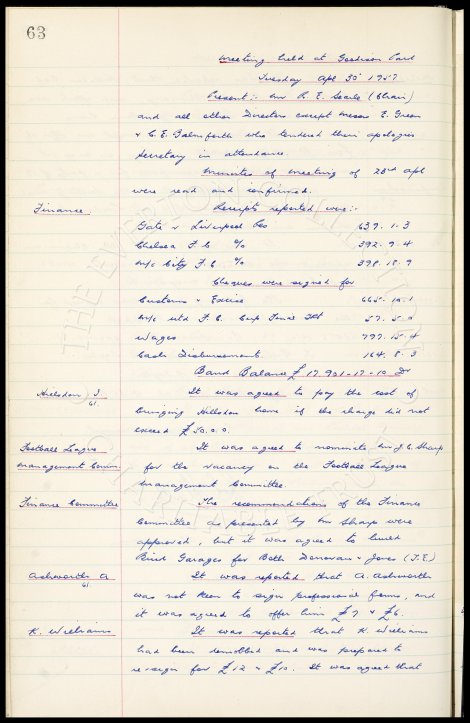 63
Meeting held at Goodison Park
Tuesday Apl 30th 1957
Present:- Mr R. E. Searle (Chair)
and all other Directors except Messrs E. Green
& C. E. Balmforth who tendered their apologies
Secretary in attendance.
Minutes of meeting of 23rd Apl
were read and confirmed.
Finance Receipts reported were:-
Gate v Liverpool Res 639. 1. 3
Chelsea F.C. % 392. 9. 4
M/c City F.C. % 398. 18. 9
Cheques were signed for
Customs & Excise 665. 10. 1
M/c Utd F.C. Cup Final Tkt 57. 5. 0
Wages 797. 15. 4
Cash Disbursements 164. 8. 3
Bank Balance £ 17,901-17-10 Dr
Hillsdon J. It was agreed to pay the cost of
61.
bringing Hillsdon home if the charge did not
exceed £50. 0. 0.
Football League It was agreed to nominate Mr J. C. Sharp
Management Comm. for the vacancy on the Football League
Management Committee.
Finance Committee The recommendations of the Finance
Committee as presented by Mr Sharp were
approved, but it was agreed to build
Brick Garages for Both Donovan & Jones (T.E.)
Ashworth A It was reported that A. Ashworth
61.
was not keen to sign professional forms, and
it was agreed to offer him £7 & £6.
K. Williams It was reported that K. Williams
had been demobbed and was prepared to
re-sign for £12 & £10. It was agreed that